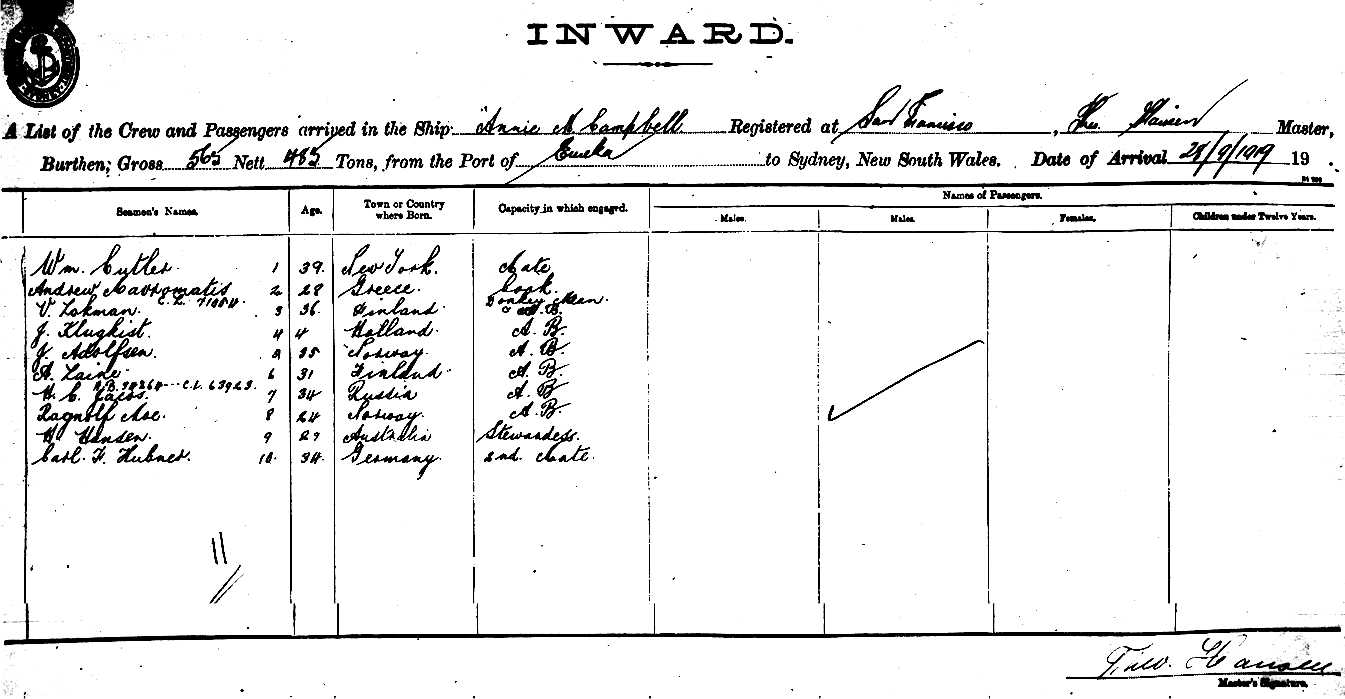 INWARD.
A List of the Crew and Passengers arrived in the Ship Annie M Campbell Registered at San Francisco, Master,
Burthen; Gross 565 Nett 485 Tons, from the Port of Eureka to Sydney, New South Wales. Date of Arrival 28/9/1919 19 .
Names of Passengers.
Seamen's Names. Age. Town or Country where Born. Capacity in which engaged. Males. Males. Females. Children under Twelve Years.
Wm. Cutler. 1 39. New York. Mate
Andrew Mavromatis 2 28 Greece. Cook.
C.L. Donkey Man.
V. Lokman. 3 36. Finland & A.B.
J. Klugkist. 4 Holland. A.B.
J. Adolfsen. 5 35 Norway. A.B.
A. Laine. 6 31 Finland. A.B.
C.L. 63923.
H. C. 7 34 Russia A.B
Ragnolf Moe. 8 24 Norway. A.B.
H Hansen. 9 Australia Stewardess.
Carl. F. Hubner. 10. 34. Germany. 2nd. Mate.
11
Hansen
Master's Signature.